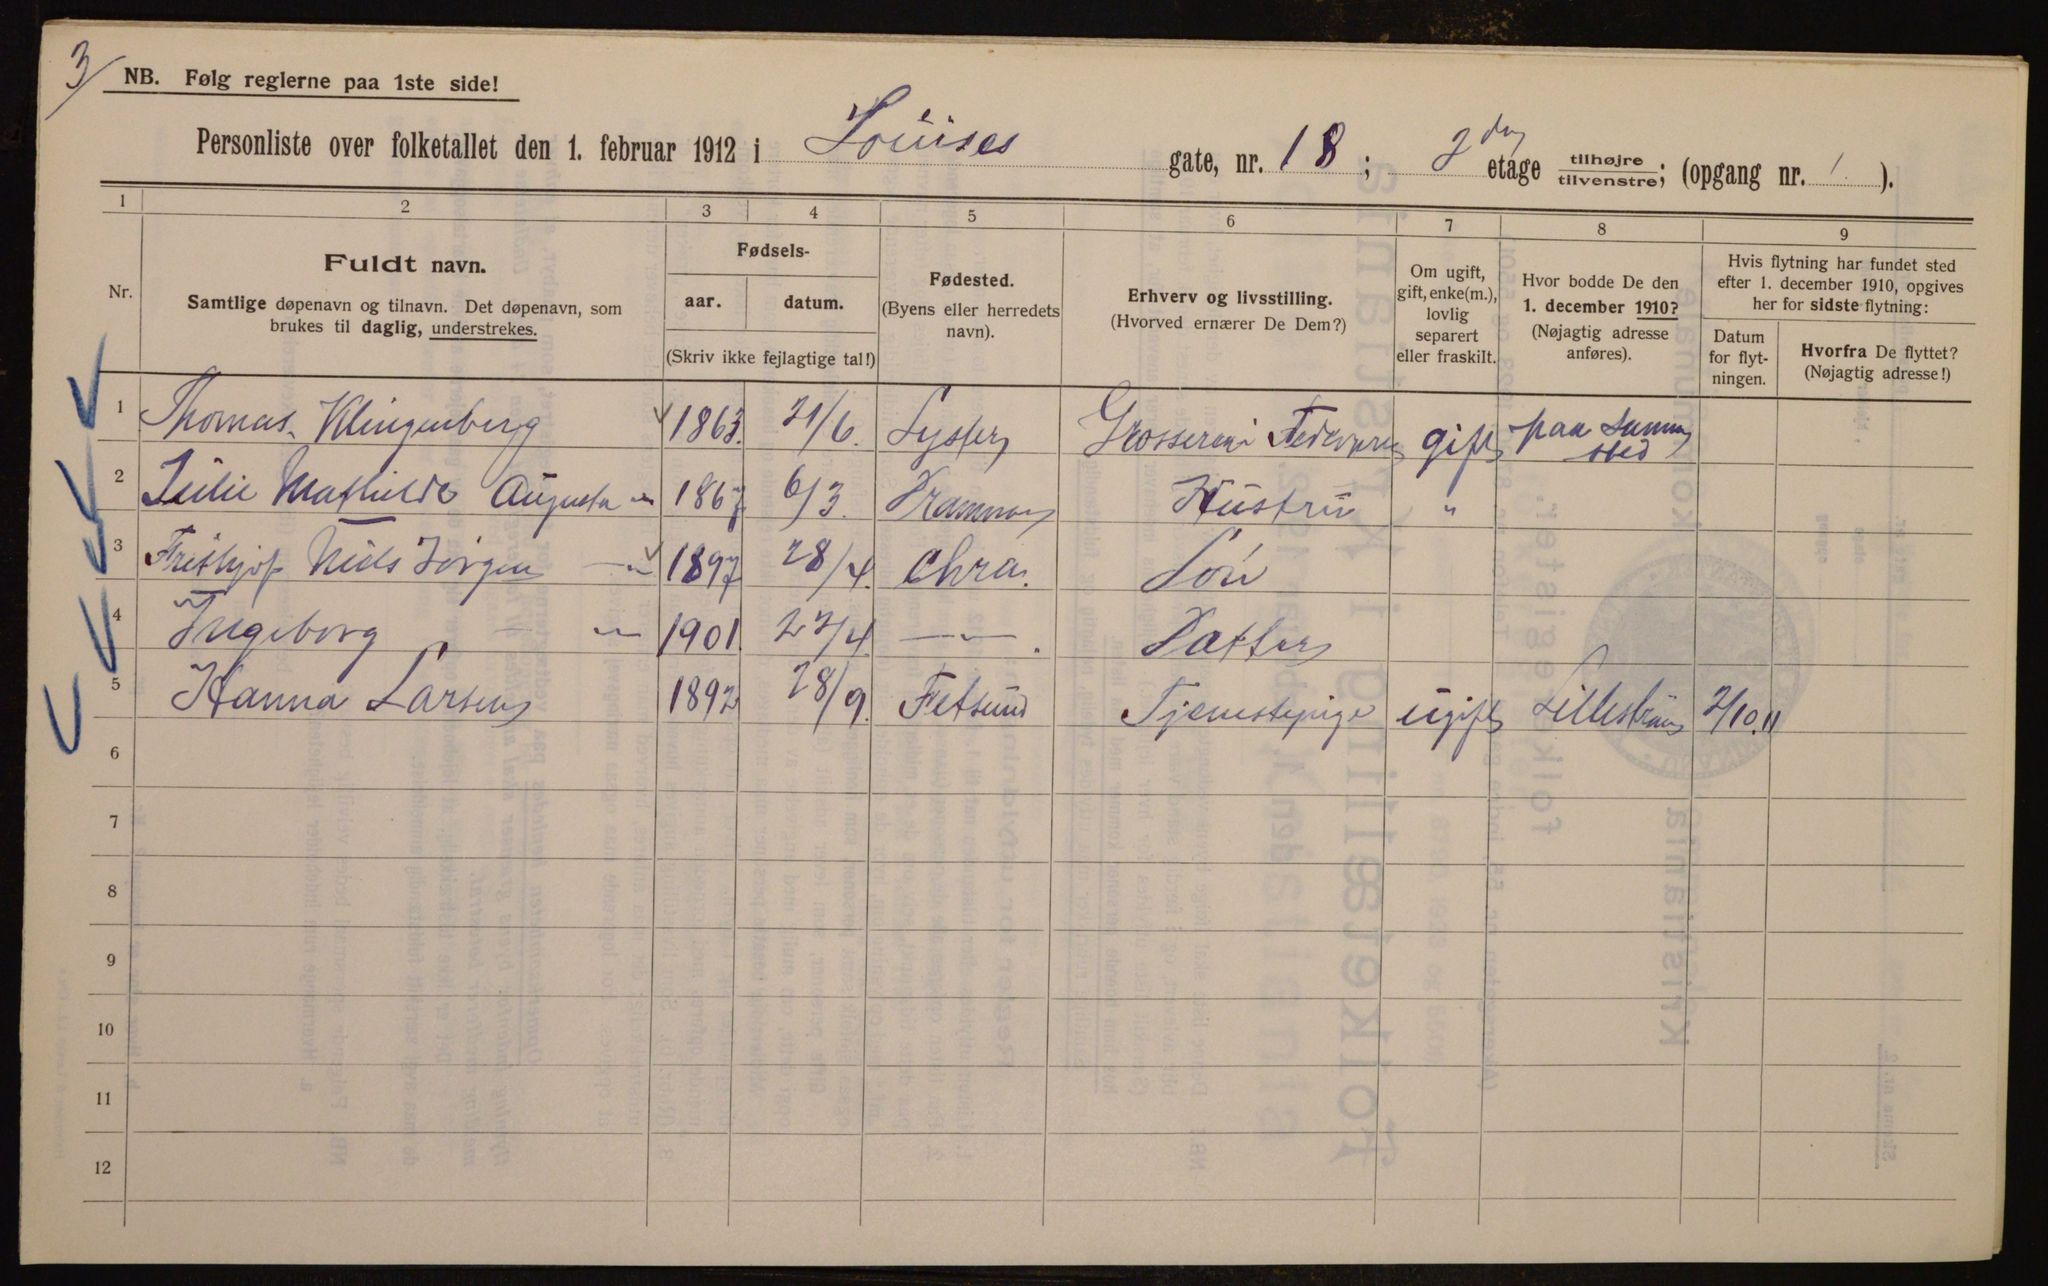 3/
NB. Følg reglerne paa 1ste side!
Personliste over folketallet den 1. februar 1912 i Louises gate, nr. 18; 2den etage tilhøjre/tilvenstre; (opgang nr. 1).
1 2 3 4 5 6 7 8 9
Nr.
Fuldt navn.
Samtlige døpenavn og tilnavn. Det døpenavn, som
brukes til daglig, understrekes.
Fødsels-
aar. datum.
(Skriv ikke fejlagtige tal!)
Fødested.
(Byens eller herredets
navn).
Erhverv og livsstilling.
(Hvorved ernærer De Dem?)
Om ugift,
gift, enke(m.),
lovlig
separert
eller fraskilt.
Hvor bodde De den
1. december 1910?
(Nøjagtig adresse
anføres).
Hvis flytning har fundet sted
efter 1. december 1910, opgives
her for sidste flytning:
Datum
for flyt-
ningen.
Hvorfra De flyttet?
(Nøjagtig adresse!)
1 Thomas Klingenberg 1863. 21/6. Lyster Grosserer i gift paa samme sted
2 Julie Mathilde Augusta — 1867 6/3. Drammen Hustru "
3 Frithjof Niels Jörgen — 1897 28/4. Chra. Sön
4 Ingeborg — 1901. 27/4. — Datter
5 Hanna Larsen 1892 28/9. Fetsund Tjenestepige ugift Lilleström 2/10.11
6
7
8
9
10
11
12